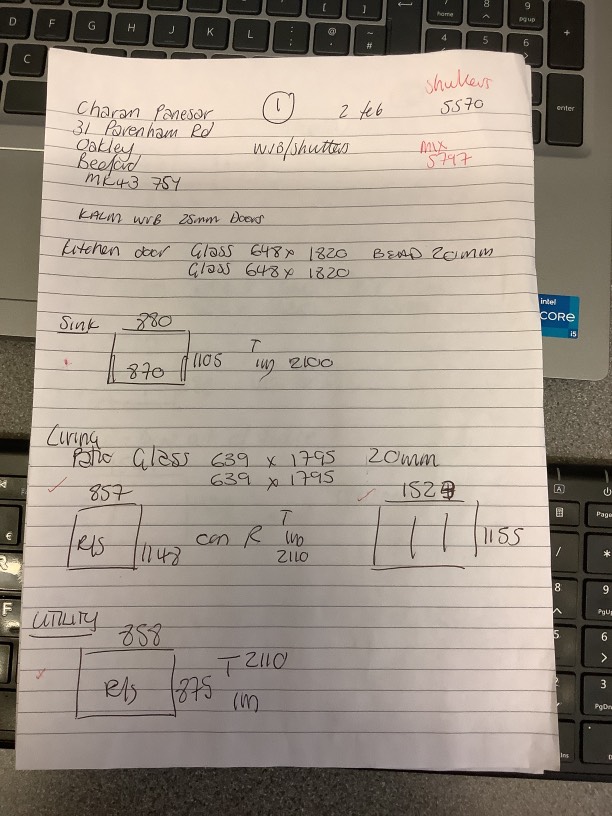 Charan Panesar
① 2 feb
shutters
5570
31 Pavenham Rd
Oakley
WVB/shutters
MIX
5797
Bedford
MK43 7SY
KALM WVB 25mm Doors
Kitchen door Glass 648 x 1820 BEAD 20mm
Glass 648 x 1820
Sink
880
870
1105
T
im 2100
Living
Patio Glass 639 x 1795 20mm
639 x 1795
857
R/S
1148
con R
T
im
2110
152
1155
UTILITY
858
R/S
875
T 2110
im
D
F
G
H
J
K
L
:
;
@
'
~
#
7
home
8
9
pg up
4
5
6
+
enter
intel
CORE
i5